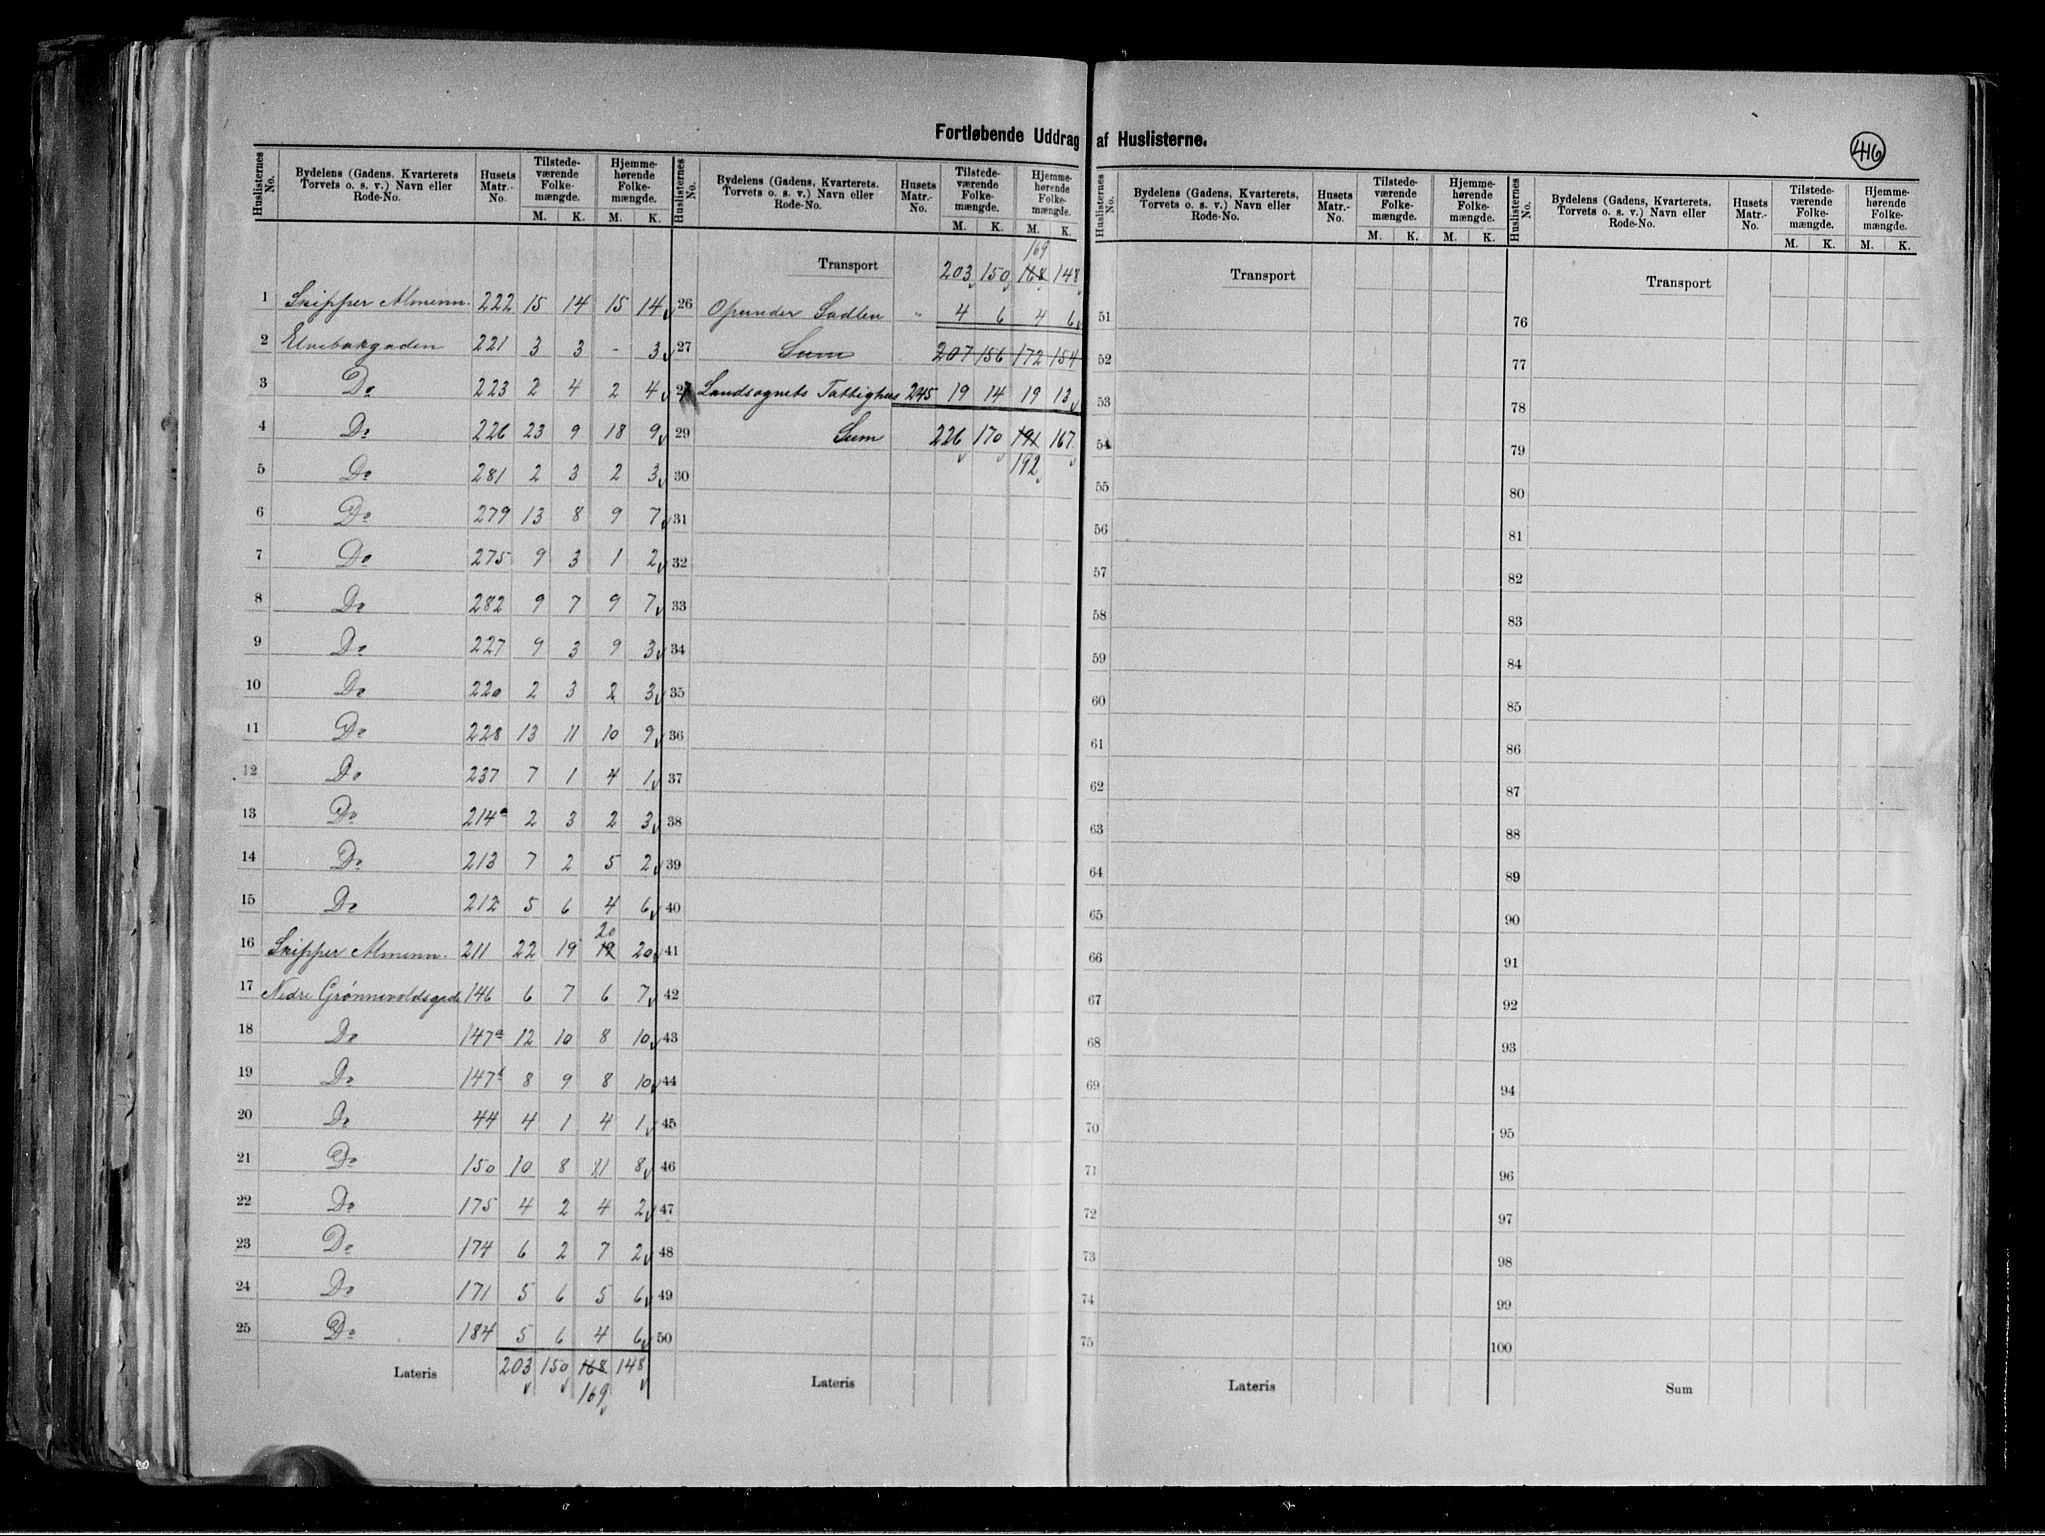 Fortløbende Uddrag af Huslisterne.
416
Huslisternes No. Bydelens (Gadens, Kvarterets Torvets o. s. v.) Navn eller Rode-No. Husets Matr.-No. Tilstedeværende Folkemængde. M. K. Hjemmehørende Folkemængde. M. K.
1 Skipper Almenn. 222 15 14 15 14
2 Elvebakgaden 221 3 3 - 3
3 Do 223 2 4 2 4
4 Do 226 23 9 18 9
5 Do 281 2 3 2 3
6 Do 279 13 8 9 7
7 Do 275 9 3 1 2
8 Do 282 9 7 9 7
9 Do 227 9 3 9 3
10 Do 220 2 3 2 3
11 Do 228 13 11 10 9
12 Do 237 7 1 4 1
13 Do 214a 2 3 2 3
14 Do 213 7 2 5 2
15 Do 212 5 6 4 6
20
16 Skipper Almenn. 211 22 19 19 20
17 Nedre Grønnevoldsgade 146 6 7 6 7
18 Do 147a 12 10 8 10
19 Do 147b 8 9 8 10
20 Do 44 4 1 4 1
21 Do 150 10 8 11 8
22 Do 175 4 2 4 2
23 Do 174 6 2 7 2
24 Do 171 5 6 5 6
25 Do 184 5 6 4 6
Lateris 203 150 168 148
169
Huslisternes No. Bydelens (Gadens, Kvarterets, Torvets o. s. v.) Navn eller Rode-No. Husets Matr.-No. Tilstedeværende Folkemængde. M. K. Hjemmehørende Folkemængde. M. K.
169
Transport 203 150 168 148
26 Opunder Sadlen " 4 6 4 6
27 Sum 207 156 172 154
27 Landsognets Fattighus 245 19 14 19 13
29 Sum 226 170 191 167
30 192
31
32
33
34
35
36
37
38
39
40
41
42
43
44
45
46
47
48
49
50
Lateris
Huslisternes No. Bydelens (Gadens, Kvarterets Torvets o. s. v.) Navn eller Rode-No. Husets Matr.-No. Tilstedeværende Folkemængde. M. K. Hjemmehørende Folkemængde. M. K.
Transport
51
52
53
54
55
56
57
58
59
60
61
62
63
64
65
66
67
68
69
70
71
72
73
74
75
Lateris
Huslisternes No. Bydelens (Gadens, Kvarterets, Torvets o. s. v.) Navn eller Rode-No. Husets Matr.-No. Tilstedeværende Folkemængde. M. K. Hjemmehørende Folkemængde. M. K.
Transport
76
77
78
79
80
81
82
83
84
85
86
87
88
89
90
91
92
93
94
95
96
97
98
99
100
Sum